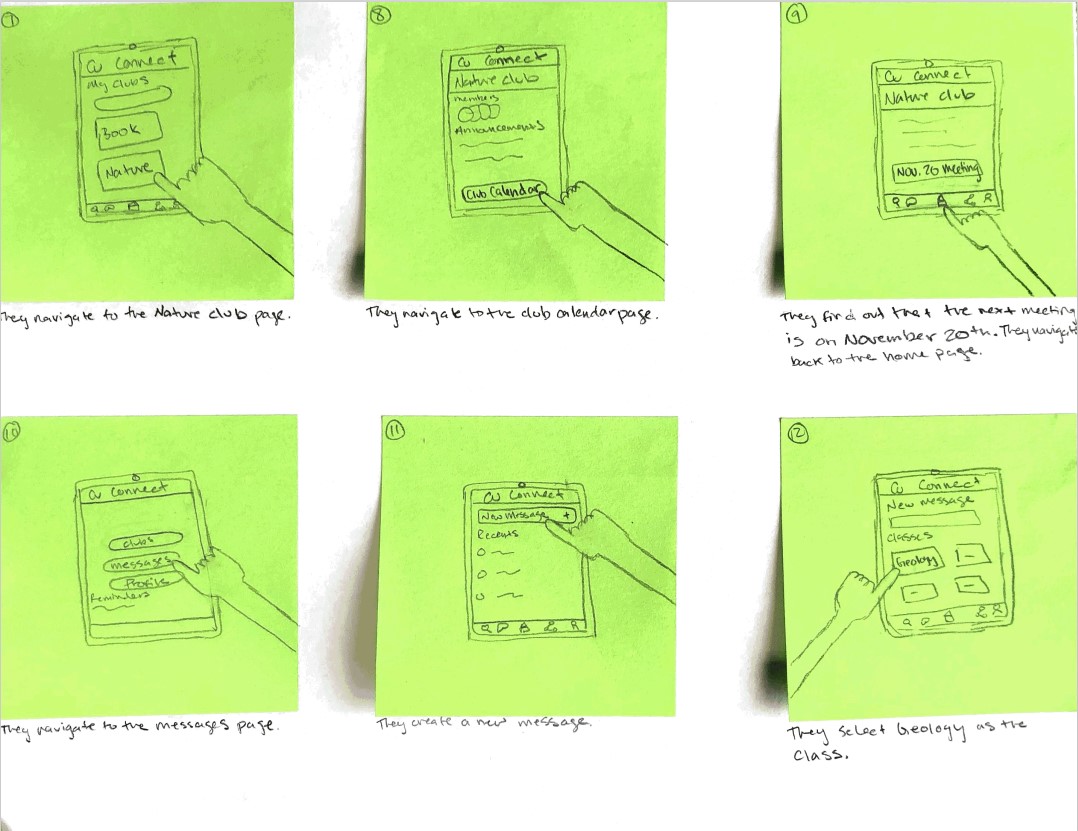 7
CU Connect
My Clubs
Book
Nature
They navigate to the Nature club page.
8
CU Connect
Nature club
members
Announcements
Club Calendar
They navigate to the club calendar page.
9
CU Connect
Nature club
Nov. 20 meeting
They find out that the next meeting
is on November 20th. They navigate
back to the home page.
10
CU Connect
clubs
messages
Profile
Reminders
They navigate to the messages page.
11
CU Connect
New Message +
Recents
They create a new message.
12
CU Connect
New message
classes
Geology
They select Geology as the
class.